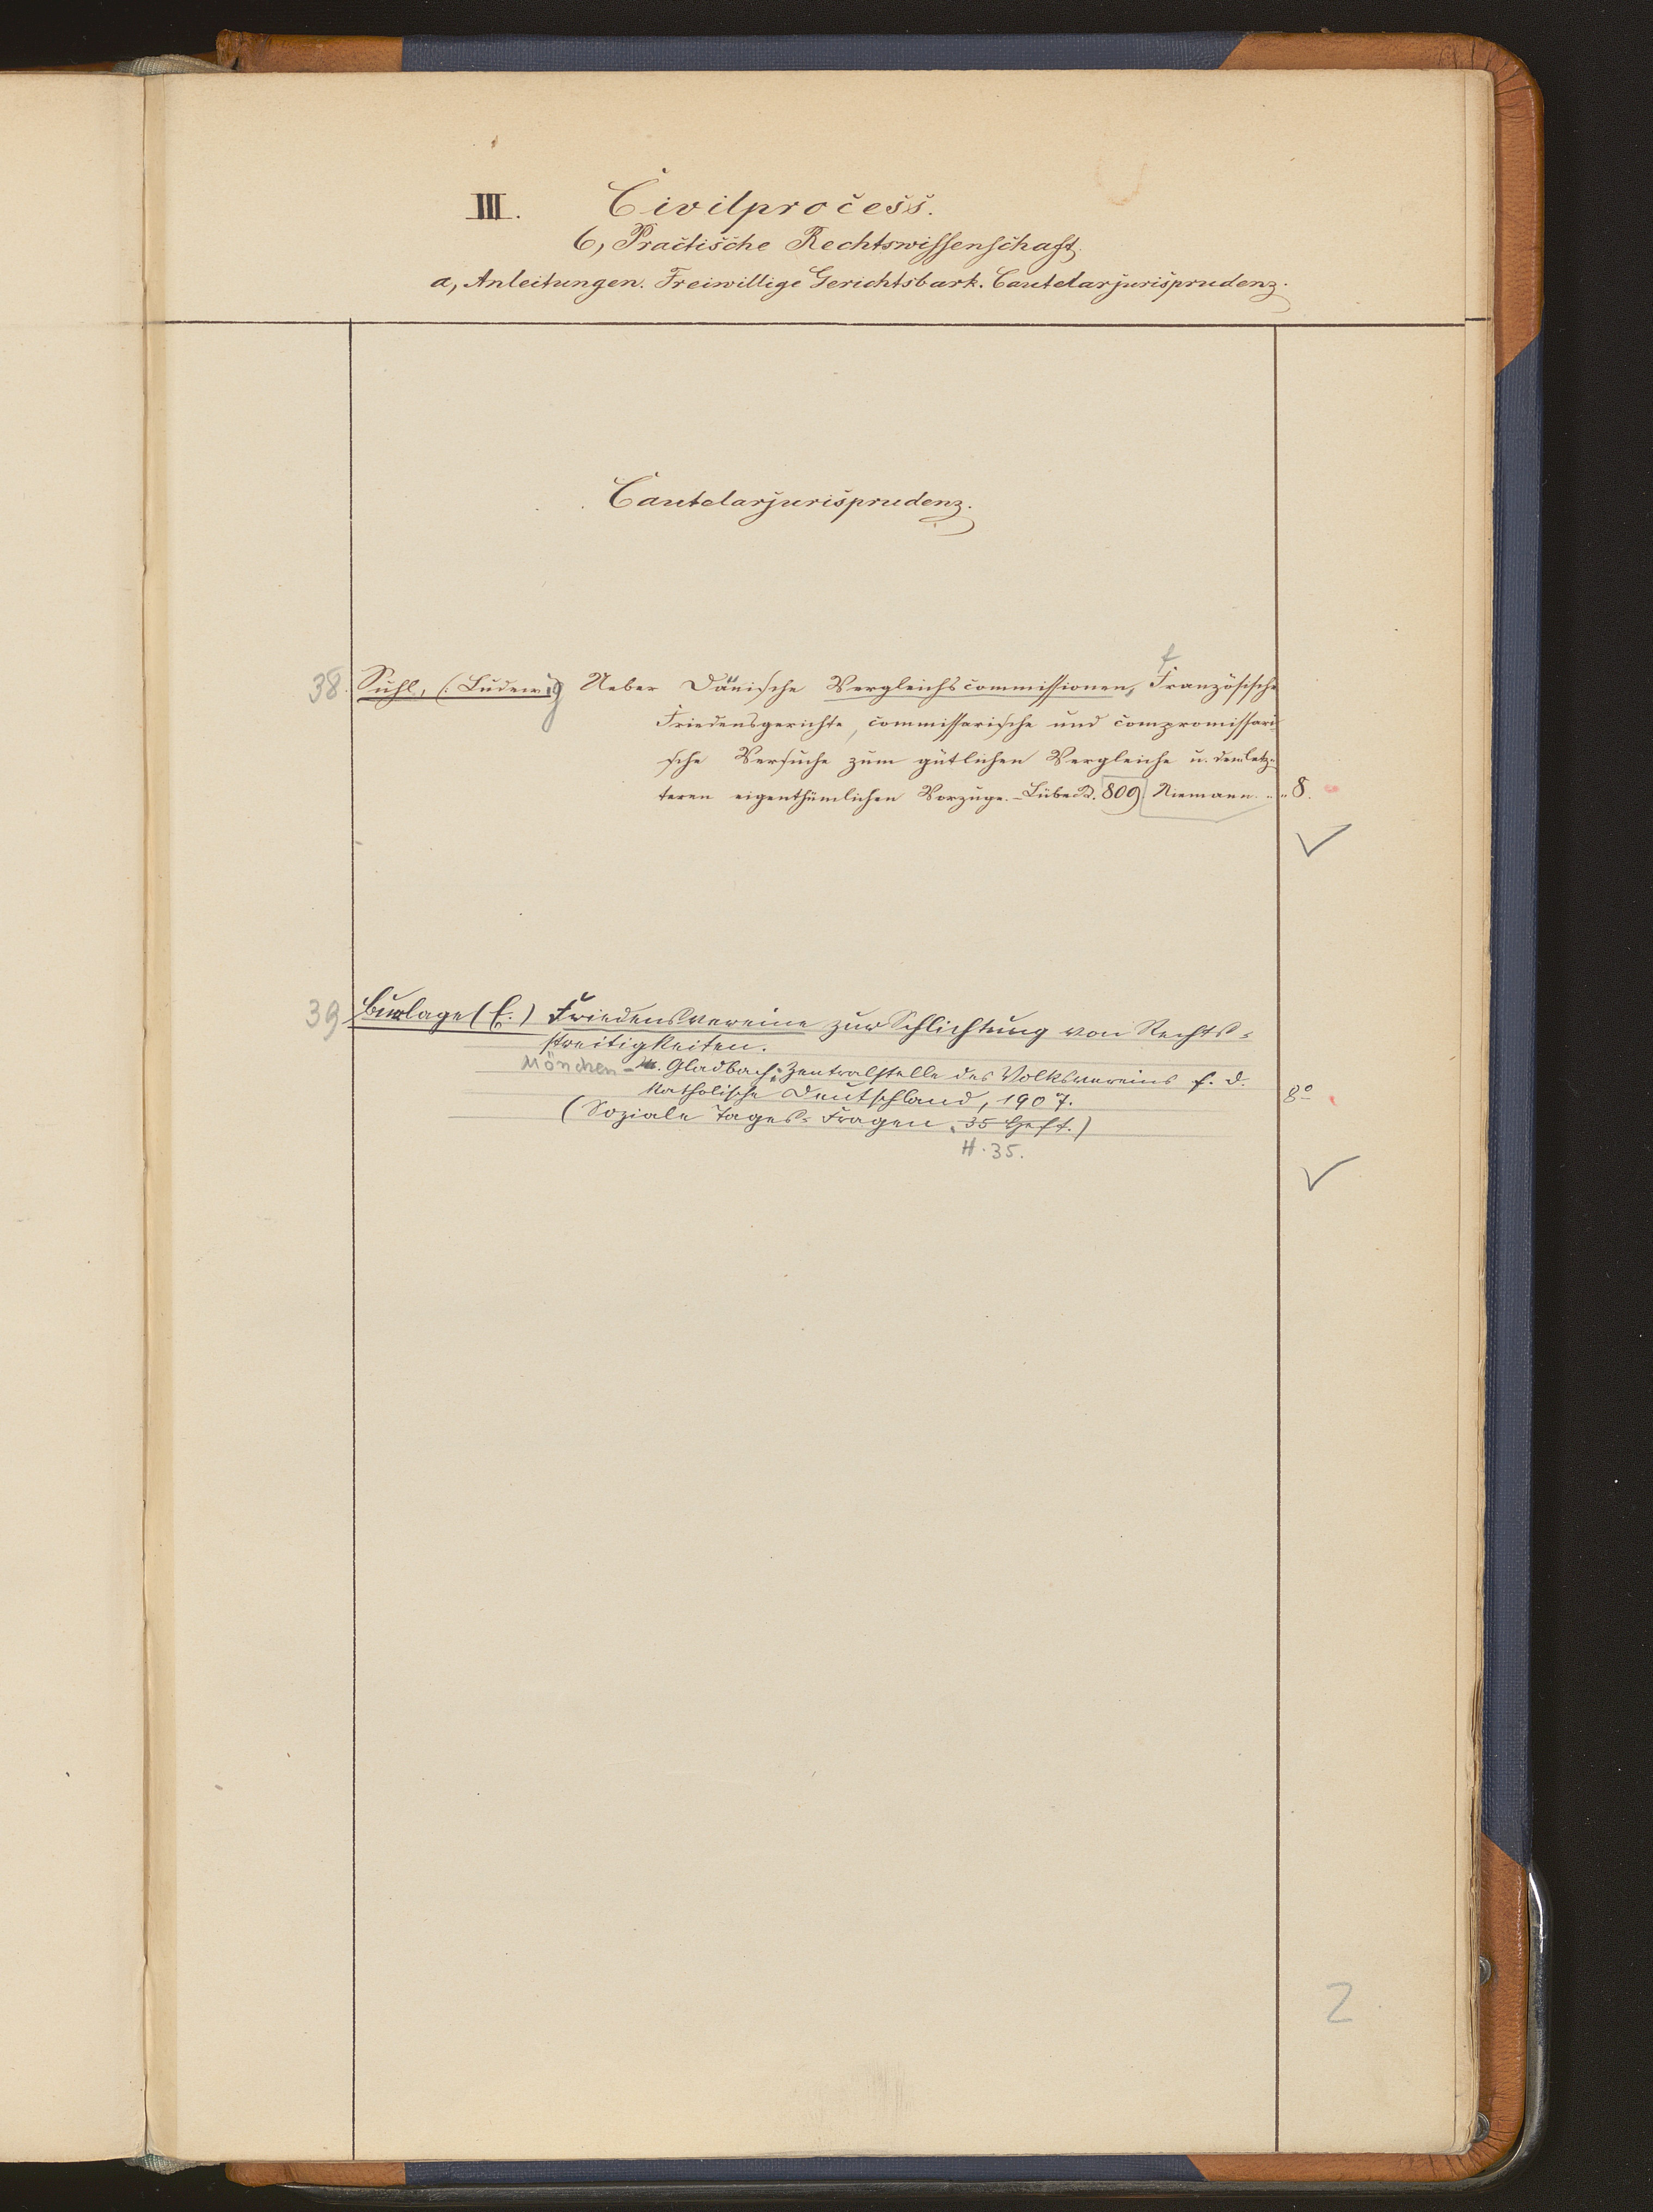 III. Civilprocess.
6, Practische Rechtswissenschaft.
a, Anleitungen. Freiwillige Gerichtsbark. Cautelarjurisprudenz.
Cautelarjurisprudenz.
f
38. Suhl, (: Ludewig Ueber Dänische Vergleichscommissionen, Französische
Friedensgerichte, commissarische und compromissari-
sche Versuche zum gütlichen Vergleiche u. dem letz-
teren eigenthümlichen Vorzüge. - Lübeck. 809. Niemann. 8.
39 Burlage (E.) Friedensvereine zur Schlichtung von Rechts-
streitigkeiten.
Mönchen - M. Gladbach: Zentralstelle des Volksvereins f. d.
katholische Deutschland, 1907. 8°
(Soziale Tages-Fragen, 35 Heft.)
H. 35.
2